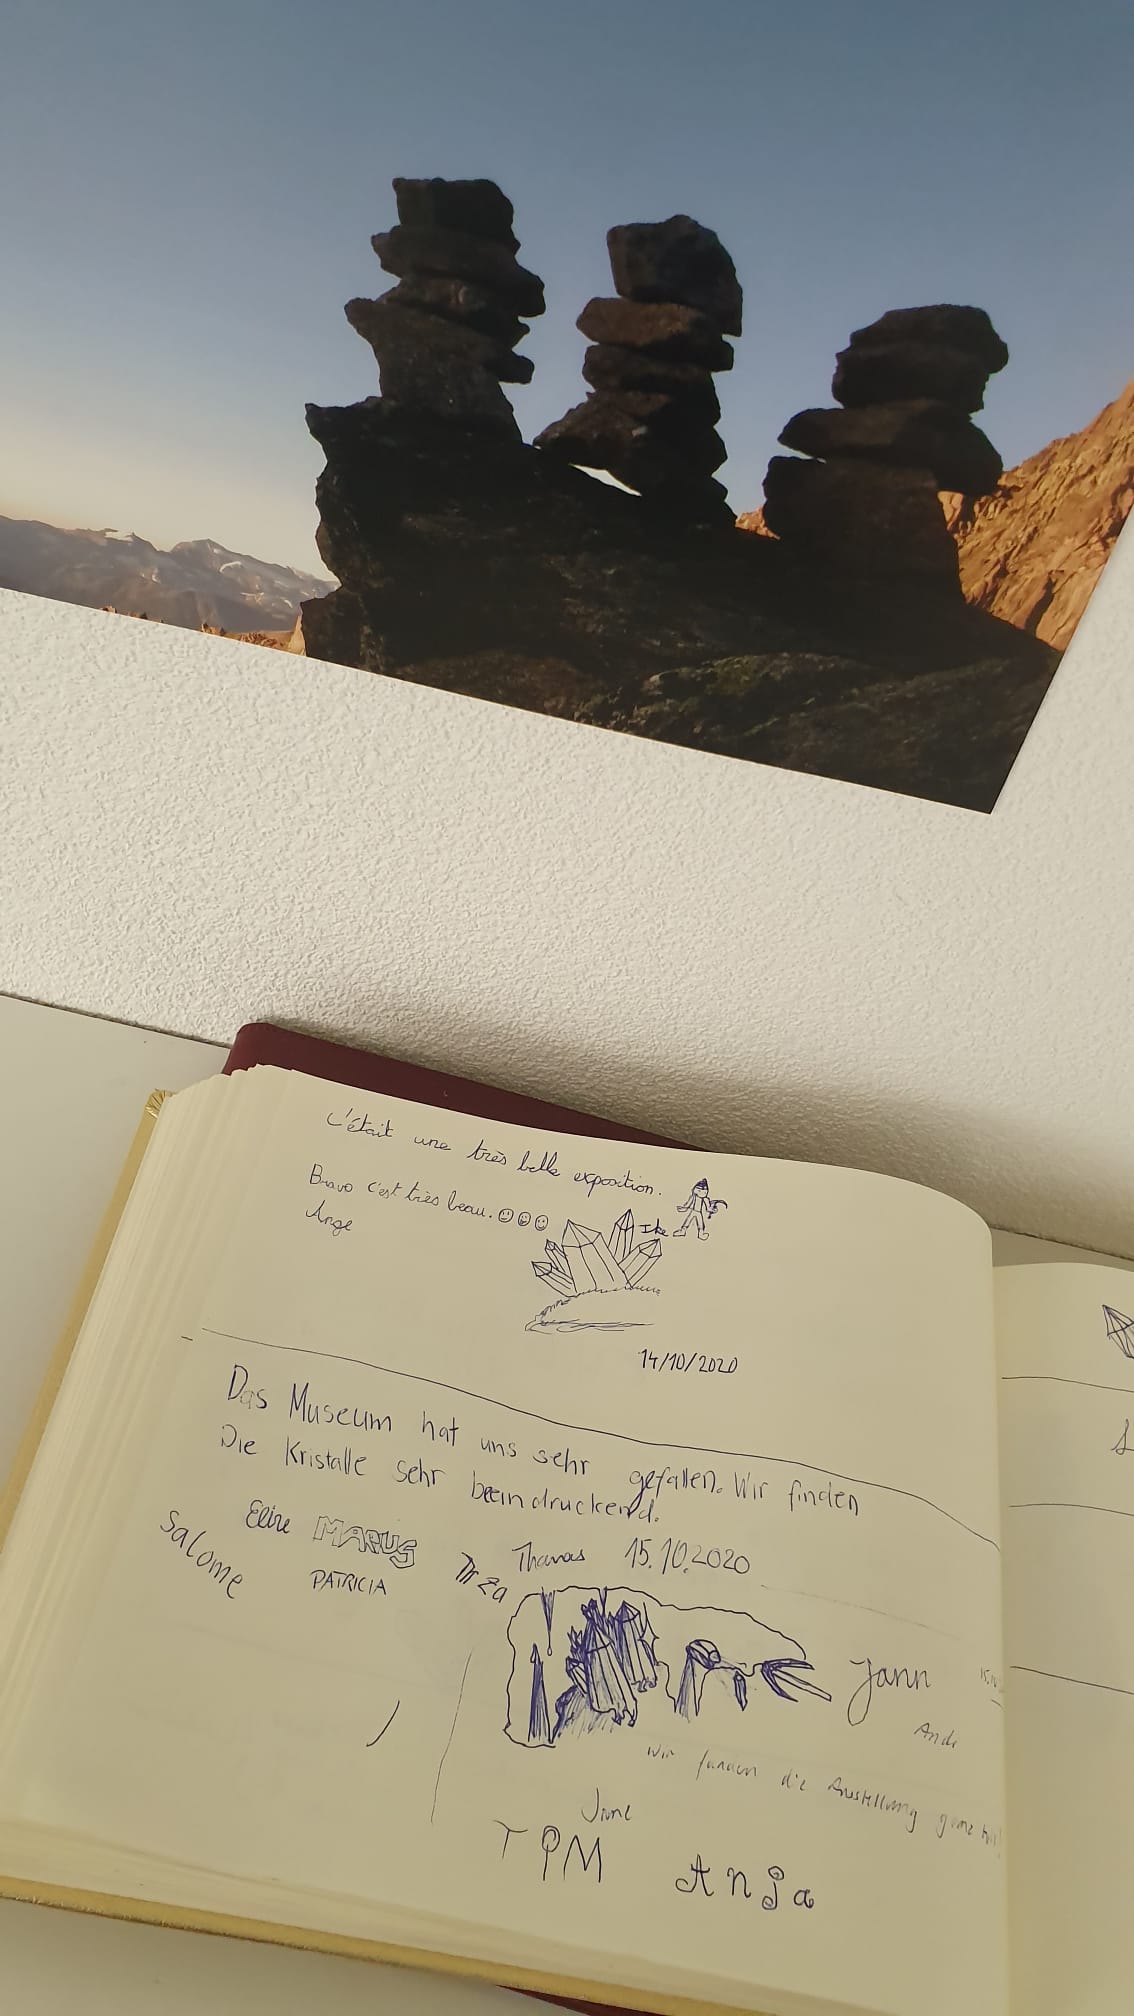 C'était une très belle exposition.
Bravo c'est très beau.
Ange
14/10/2020
Das Museum hat uns sehr gefallen. Wir finden
Die Kristalle sehr beeindruckend.
Eline MARIUS Thomas 15.10.2020
Salome PATRICIA
Jann
Wir fanden die Ausstellung ganz
June
TIM Anja